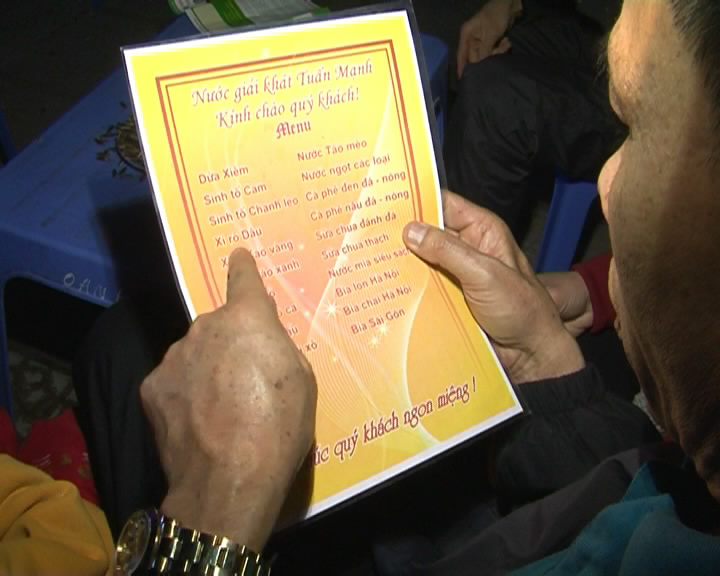 Nước giải khát Tuấn Mạnh
Kính chào quý khách!
Menu
Dừa Xiêm
Sinh tố Cam
Sinh tố Chanh leo
Xi rô Dâu
vàng
xanh
Nước Táo mèo
Nước ngọt các loại
Cà phê đen đá - nóng
Cà phê nâu đá - nóng
Sữa chua đánh đá
Sữa chua thạch
Nước mía siêu sạch
Bia lon Hà Nội
Bia chai Hà Nội
Bia Sài Gòn
quý khách ngon miệng !